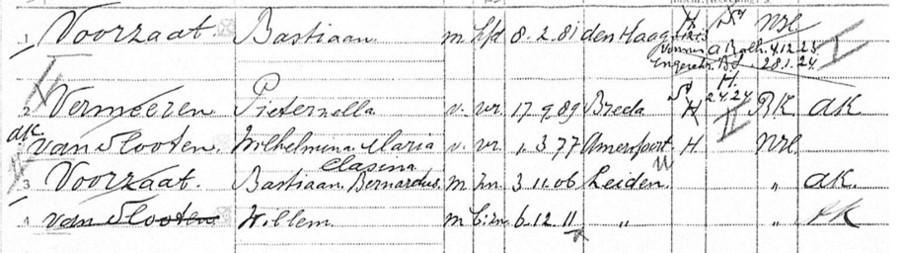 1 Voorzaat. Bastiaan. m. hfd 8.2.81 den Haag H S Nrl. I
Vonnis a. Rotth. 4.12.23
Ingeschr. B.S. 28.1.24
2 Vermeeren Pieternella v. vr. 17.9.89 Breda H 2.4.24 II RK AK
AK van Slooten. Wilhelmina Maria v. vr. " 3 77 Amersfoort H Nrl.
Clasina
3 Voorzaat. Bastiaan Bernardus. m zn. 3.11.06 Leiden. " AK.
4 van Slooten Willem. m 6.12.11 " " AK